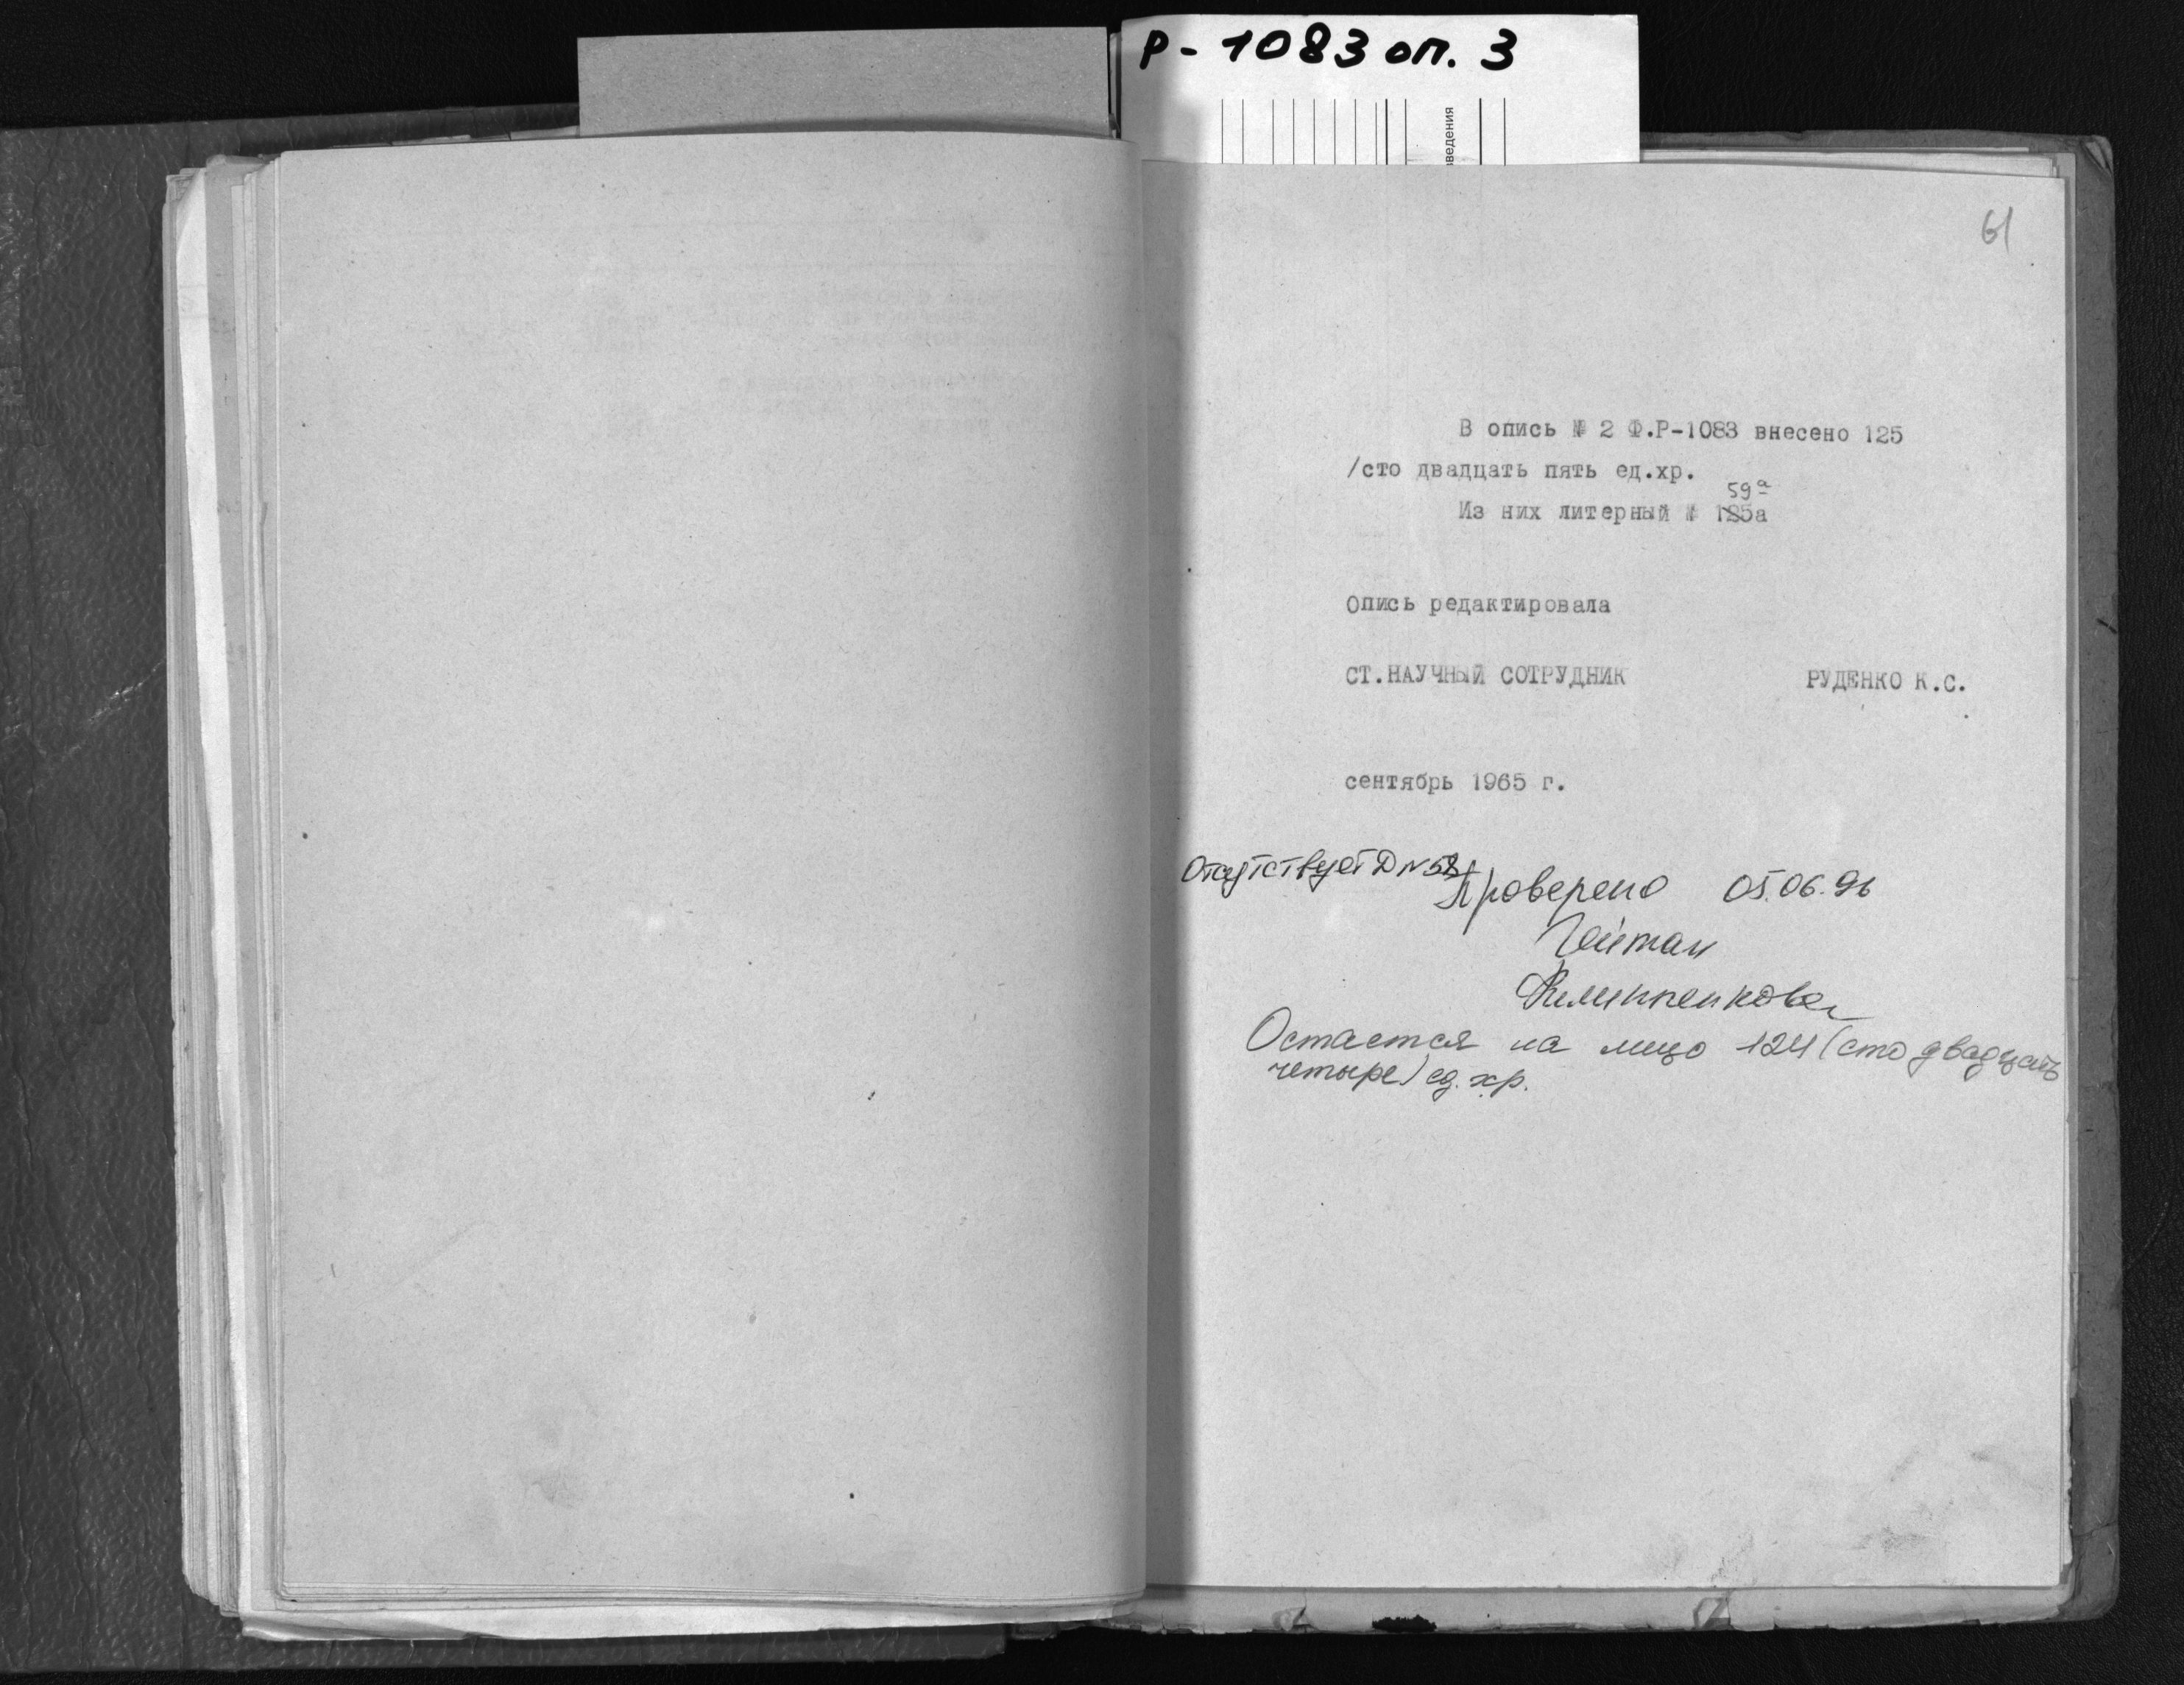 Р-1083 оп. 3
введения
61
В опись № 2 Ф.Р-1083 внесено 125
/сто двадцать пять ед.хр.
59а
Из них литерный № 125а
Опись редактировала
СТ.НАУЧНЫЙ СОТРУДНИК РУДЕНКО К.С.
сентябрь 1965 г.
Отсутствует Д №58
Проверено 05.06.96
Остается на лицо 124 (сто двадцать
четыре) ед. хр.